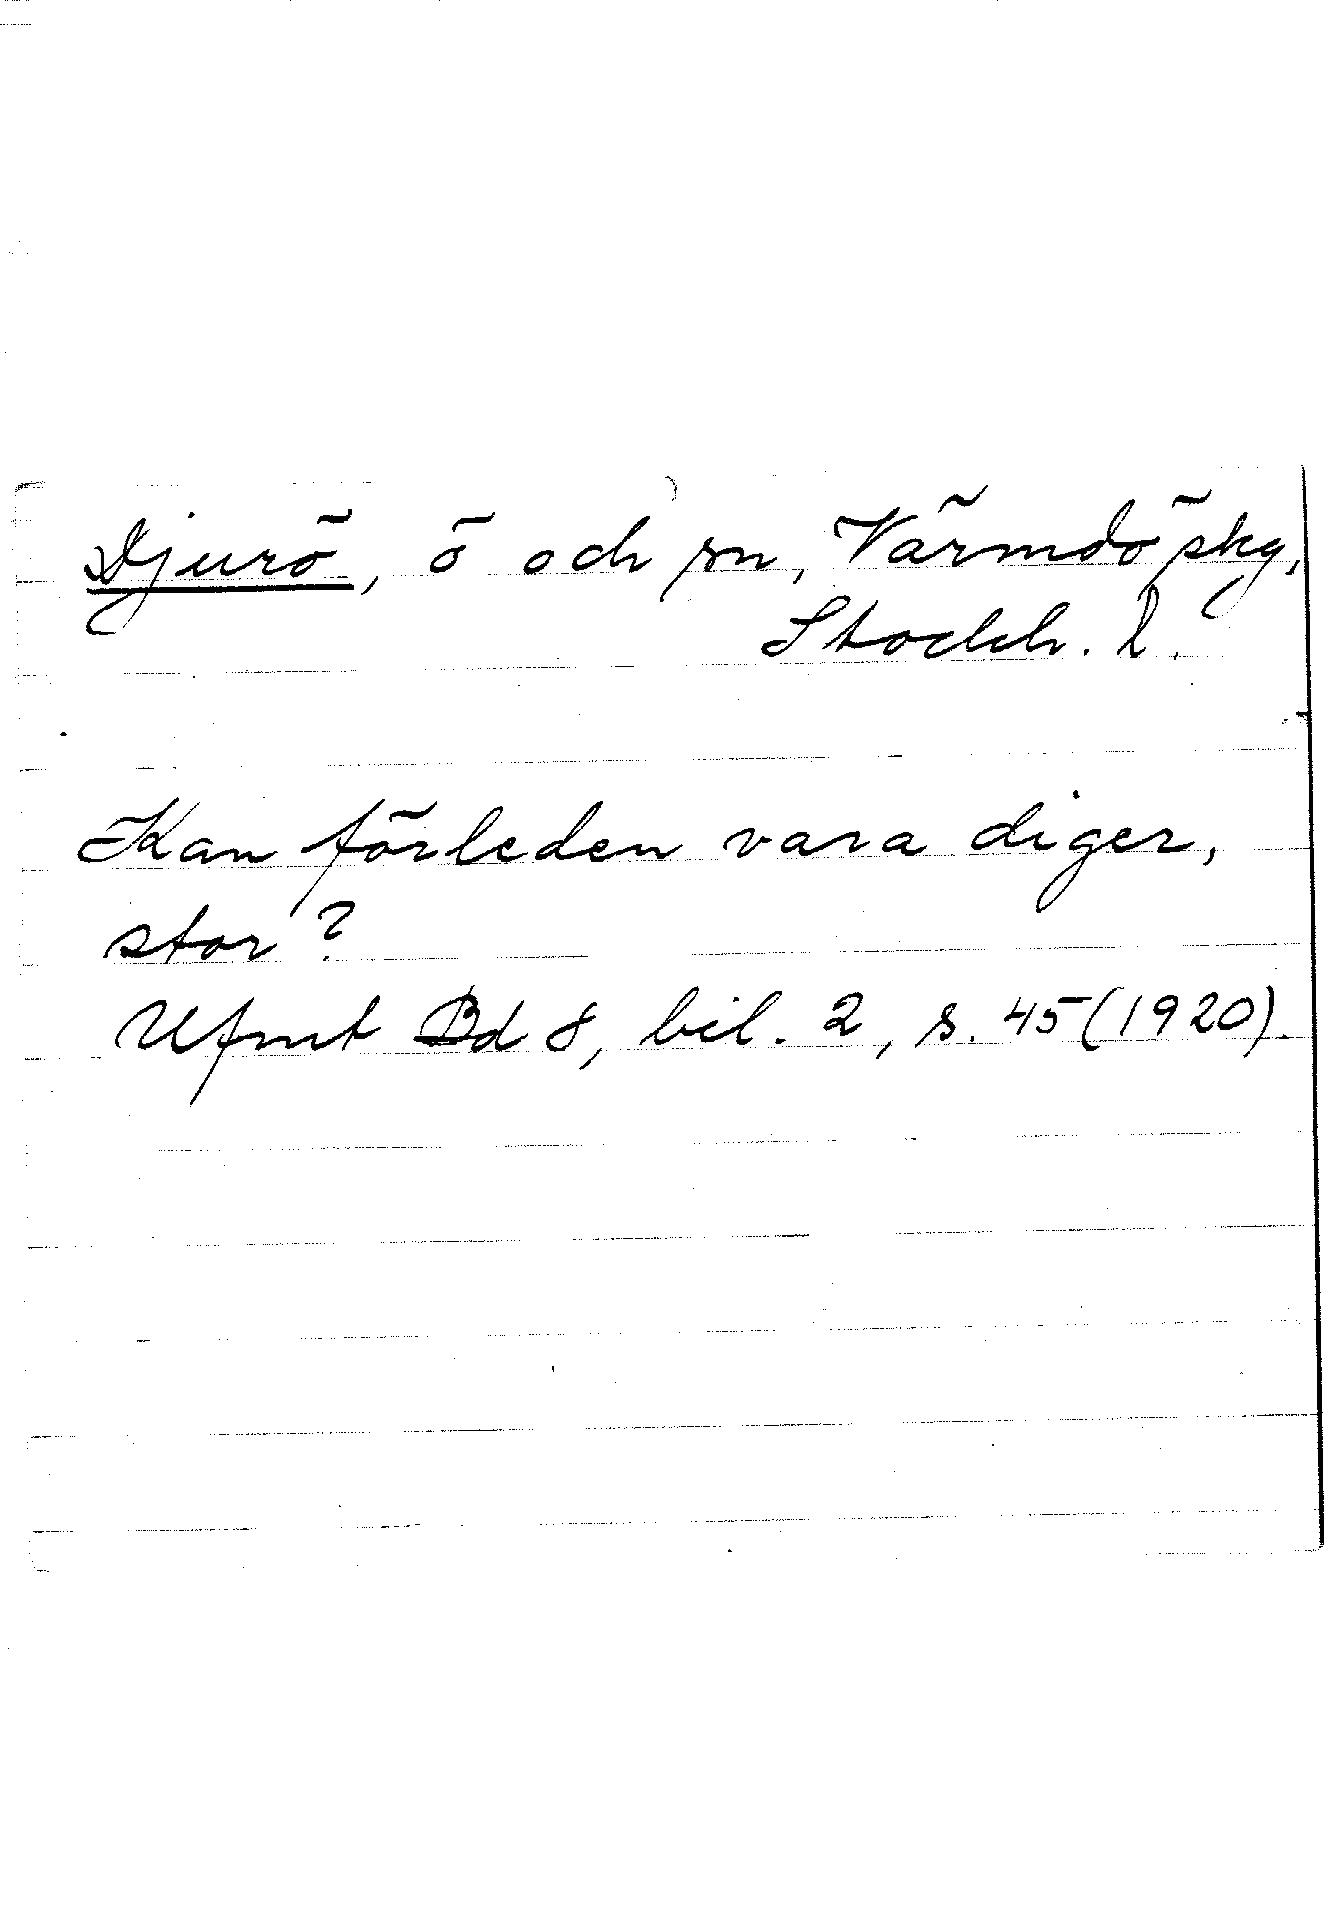 Djurö, ö och sn, Värmdö skg,
Stockh. l.
Kan förleden vara diger,
stor?
Ufmt Bd 8, bil. 2, s. 45 (1920).